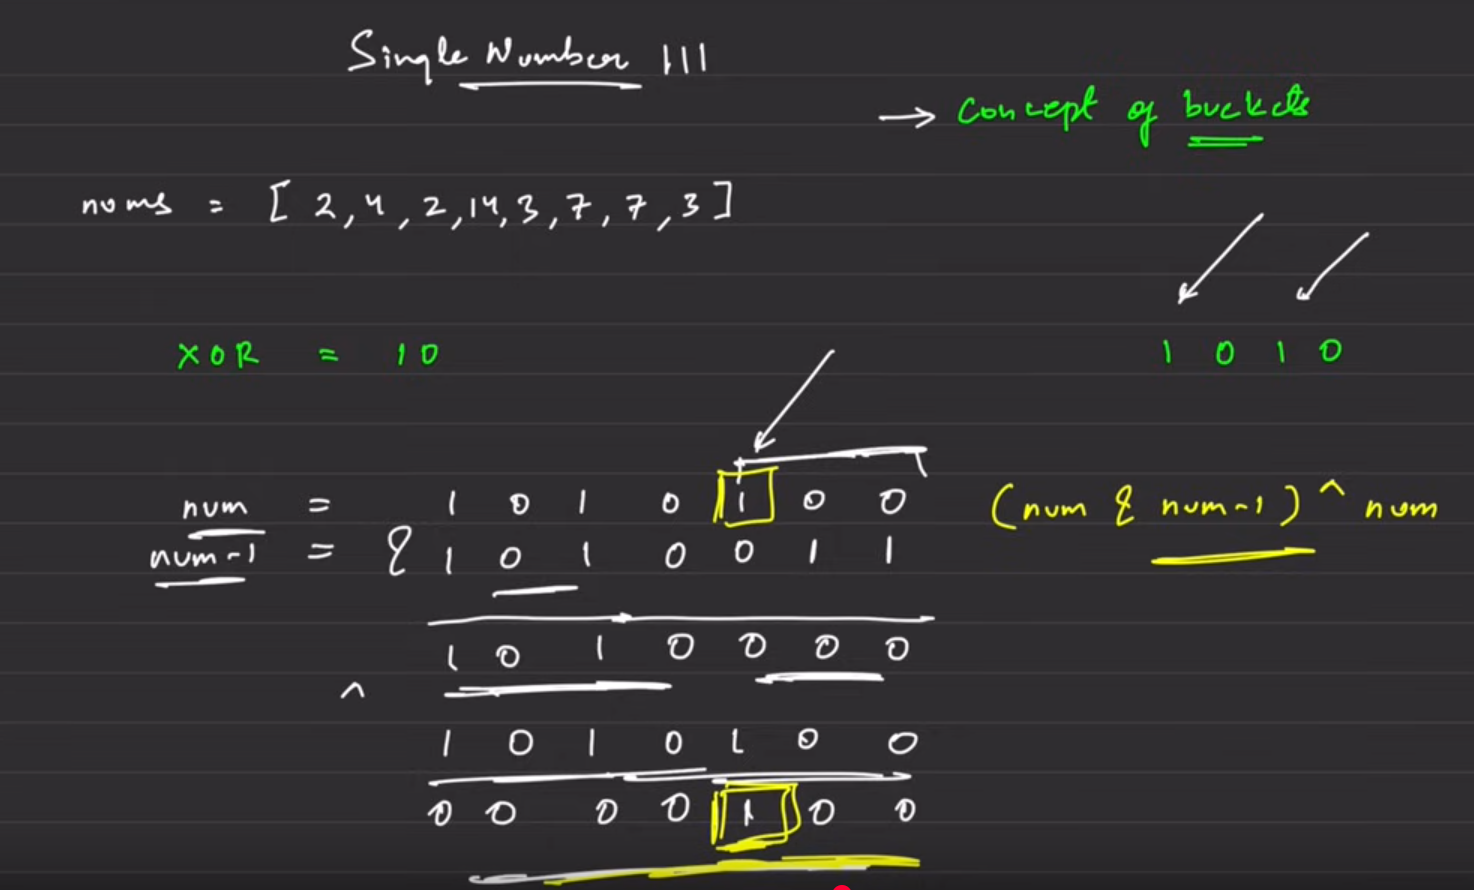 Single Number III
→ concept of buckets
nums = [ 2, 4, 2, 14, 3, 7, 7, 3 ]
XOR = 10
1 0 1 0
num = 1 0 1 0 1 0 0
(num & num-1) ^ num
num-1 = & 1 0 1 0 0 1 1
1 0 1 0 0 0 0
^
1 0 1 0 1 0 0
0 0 0 0 1 0 0